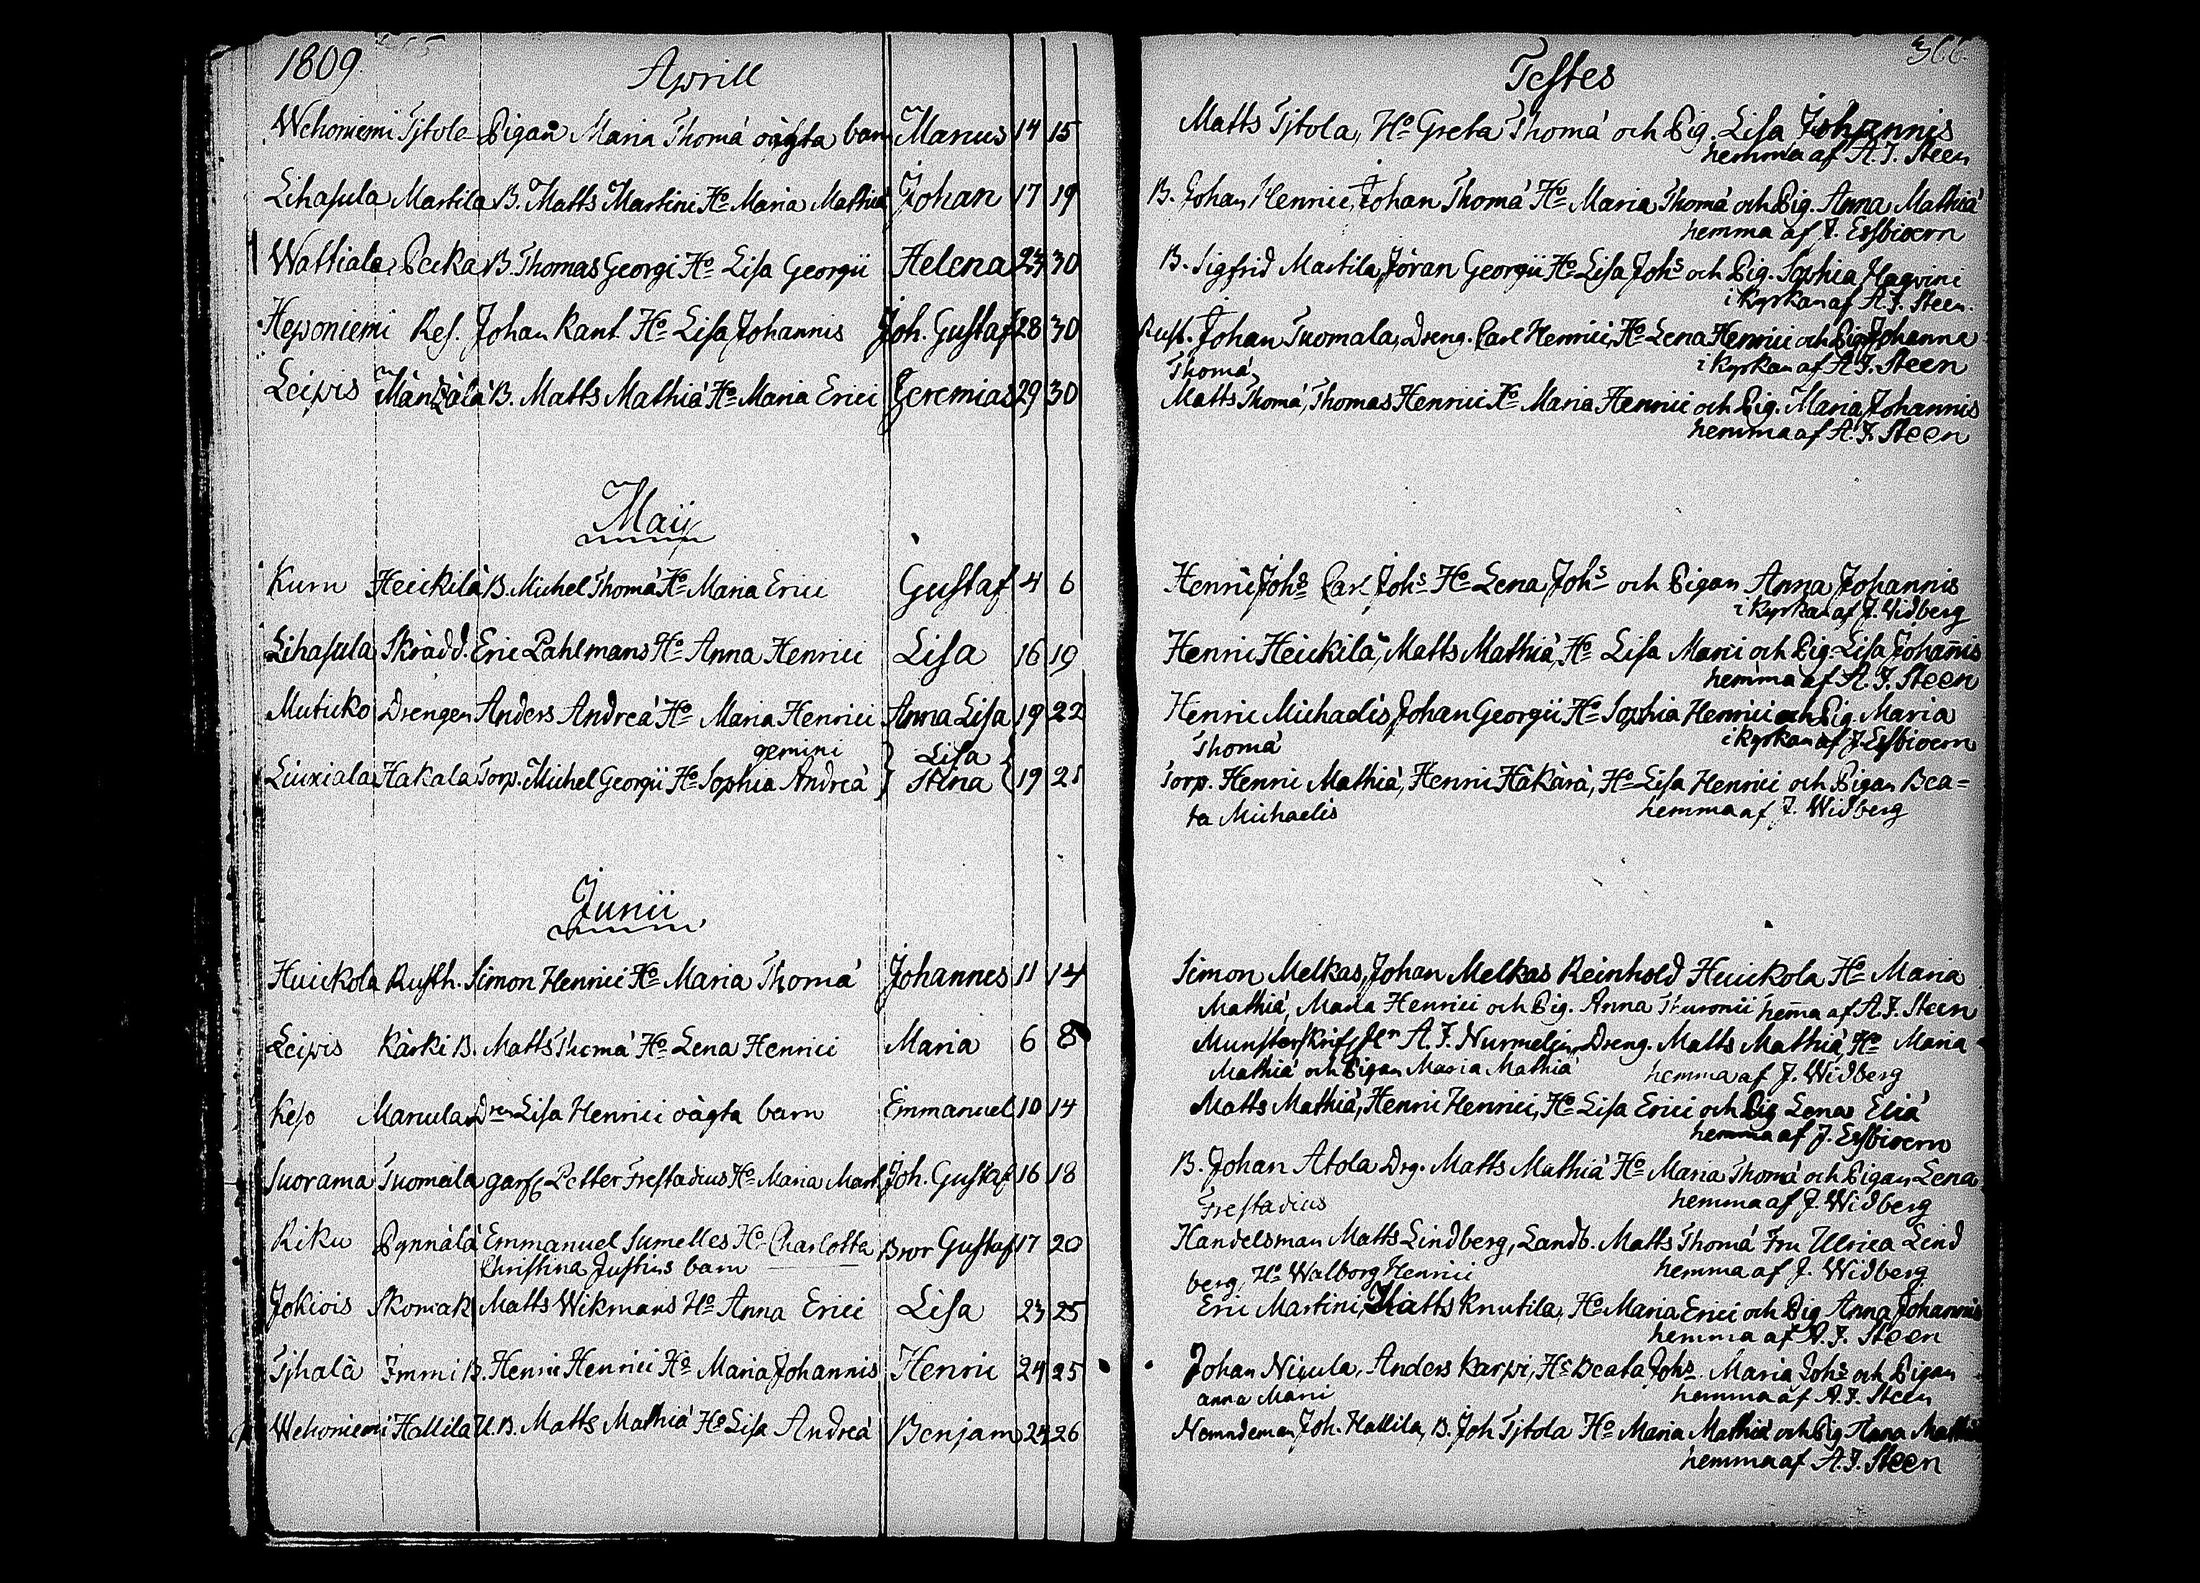 1809
Aprill
Wehoniemi Tjtola Pigan Maria Thomä oägta barn Manus 14 15
Lihasula Martila B. Matts Martini Ho Maria Mathiä Johan 17 19
Wattiala Pecka B. Thomas Georgi Ho Lisa Georgii Helena 23 30
Heponiemi Ref. Johan Rant Ho Lisa Johannis Joh. Gustaf 28 30
Leipis B. Matts Mathiä Ho Maria Erici Jeremias 29 30
Maij
Kurn Heickilä B. Michel Thomä Ho Maria Erici Gustaf 4 6
Lihasula Skrädd. Eric Pahlmans Ho Anna Henrici Lisa 16 19
Muticko Drengen Anders Andreä Ho Maria Henrici Anna Lisa 19 22
gemini Lisa
Liuxiala Hakala Torp. Michel Georgii Ho Sophia Andreä Stina 19 21
Junii
Huickola Rusth. Simon Henrici Ho Maria Thomä Johannes 11 14
Leipis Kärki B. Matts Thomä Ho Lena Henrici Maria 6 8
Keso Manula Lisa Henrici oägta barn Emmanuel 10 14
Suorama Tuomala Petter Frestadius Ho Maria Mart. Joh. Gustaf 16 18
Riku Pynnälä Emmanuel Sumelles Ho Charlotta Bror Gustaf 17 20
Christina Justius barn
Jokiois Skomak. Matts Wikmans Ho Anna Erici Lisa 23 25
Tjhalä Immi B. Henric Henrici Ho Maria Johannis Henric 24 25
Wehoniemi Hallila U.B. Matts Mathiä Ho Lisa Andreä Benjam 24 26
366
Testes
Matts Tjtola, Ho Greta Thomä och Pig. Lisa Johannis
hemma af A.J. Steen
B. Johan Henric, Johan Thomä Ho Maria Thomä och Pig. Anna Mathiä
hemma af J. Essbioern
B. Sigfrid Martila, Jöran Georgii Ho Lisa Johs och Pig. Sophia Haqvini
i kyrkan af A.J. Steen.
Rust. Johan Tuomala, Dreng. Carl Henrici, Ho Lena Henrici och Pig Johanna
Thomä, i kyrkan af A.J. Steen
Matts Thomä, Thomas Henrici Ho Maria Henrici och Pig. Maria Johannis
hemma af A.J. Steen
Henric Johs Carl Johs Ho Lena Johs och Pigan Anna Johannis
i kyrkan af J. Widberg
Henric Heickilä, Matts Mathiä, Ho Lisa Marci och Pig. Lisa Johannis
hemma af A.J. Steen
Henric Michaelis, Johan Georgii Ho Sophia Henrici och Pig Maria
Thomä i kyrkan af J. Essbioern
Torp. Henric Mathiä, Henric Häkärä, Ho Lisa Henrici och Pigan Bea-
ta Michaelis hemma af J. Widberg
Simon Melkas, Johan Melkas Reinhold Huickola Ho Maria
Mathiä, Maria Henrici och Pig. Anna Thuronii hema af A.J. Steen
A.J. Nurmelin, Dreng. Matts Mathiä, Ho Maria
Mathiä och Pigan Maria Mathiä hemma af J. Widberg
Matts Mathiä, Henric Henrici, Ho Lisa Erici och Pig Lena Eliä
hemma af J. Essbioern
B. Johan Atola Drg. Matts Mathiä Ho Maria Thomä och Pigan Lena
Frestadius hemma af J. Widberg
Handelsman Matts Lindberg, Landb. Matts Thomä Fru Ulrica Lind
berg, Ho Walborg Henrici hemma af J. Widberg
Eric Martini, Matts Knutila, Ho Maria Erici och Pig Anna Johannis
hemma af A.J. Steen
Johan Nigula, Anders Karpi, Ho Beata Johs. Maria Johs och Pigan
anna Marci hemma af A.J. Steen
Nämndeman Joh. Hallila, B. Joh Tjtola Ho Maria Mathiä och Pig Mathiä
hemma af A.J. Steen